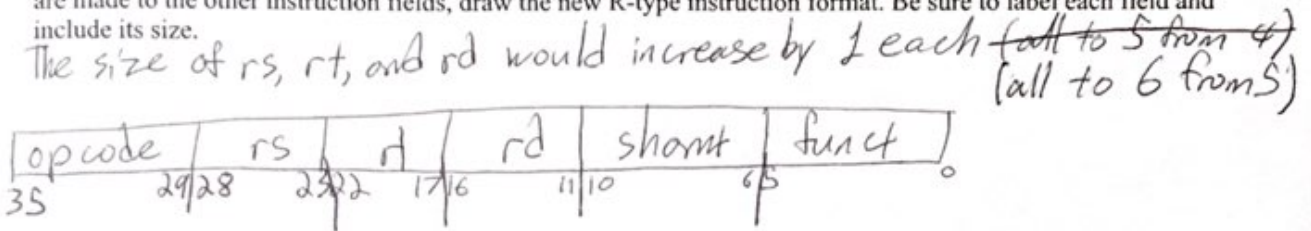 are made to the other instruction fields, draw the new R-type instruction format. Be sure to label each field and
include its size.
The size of rs, rt, and rd would increase by 1 each (all to 5 from 4)
(all to 6 from 5)
opcode rs rt rd shamt funct
35 29 28 23 22 17 16 11 10 6 5 0